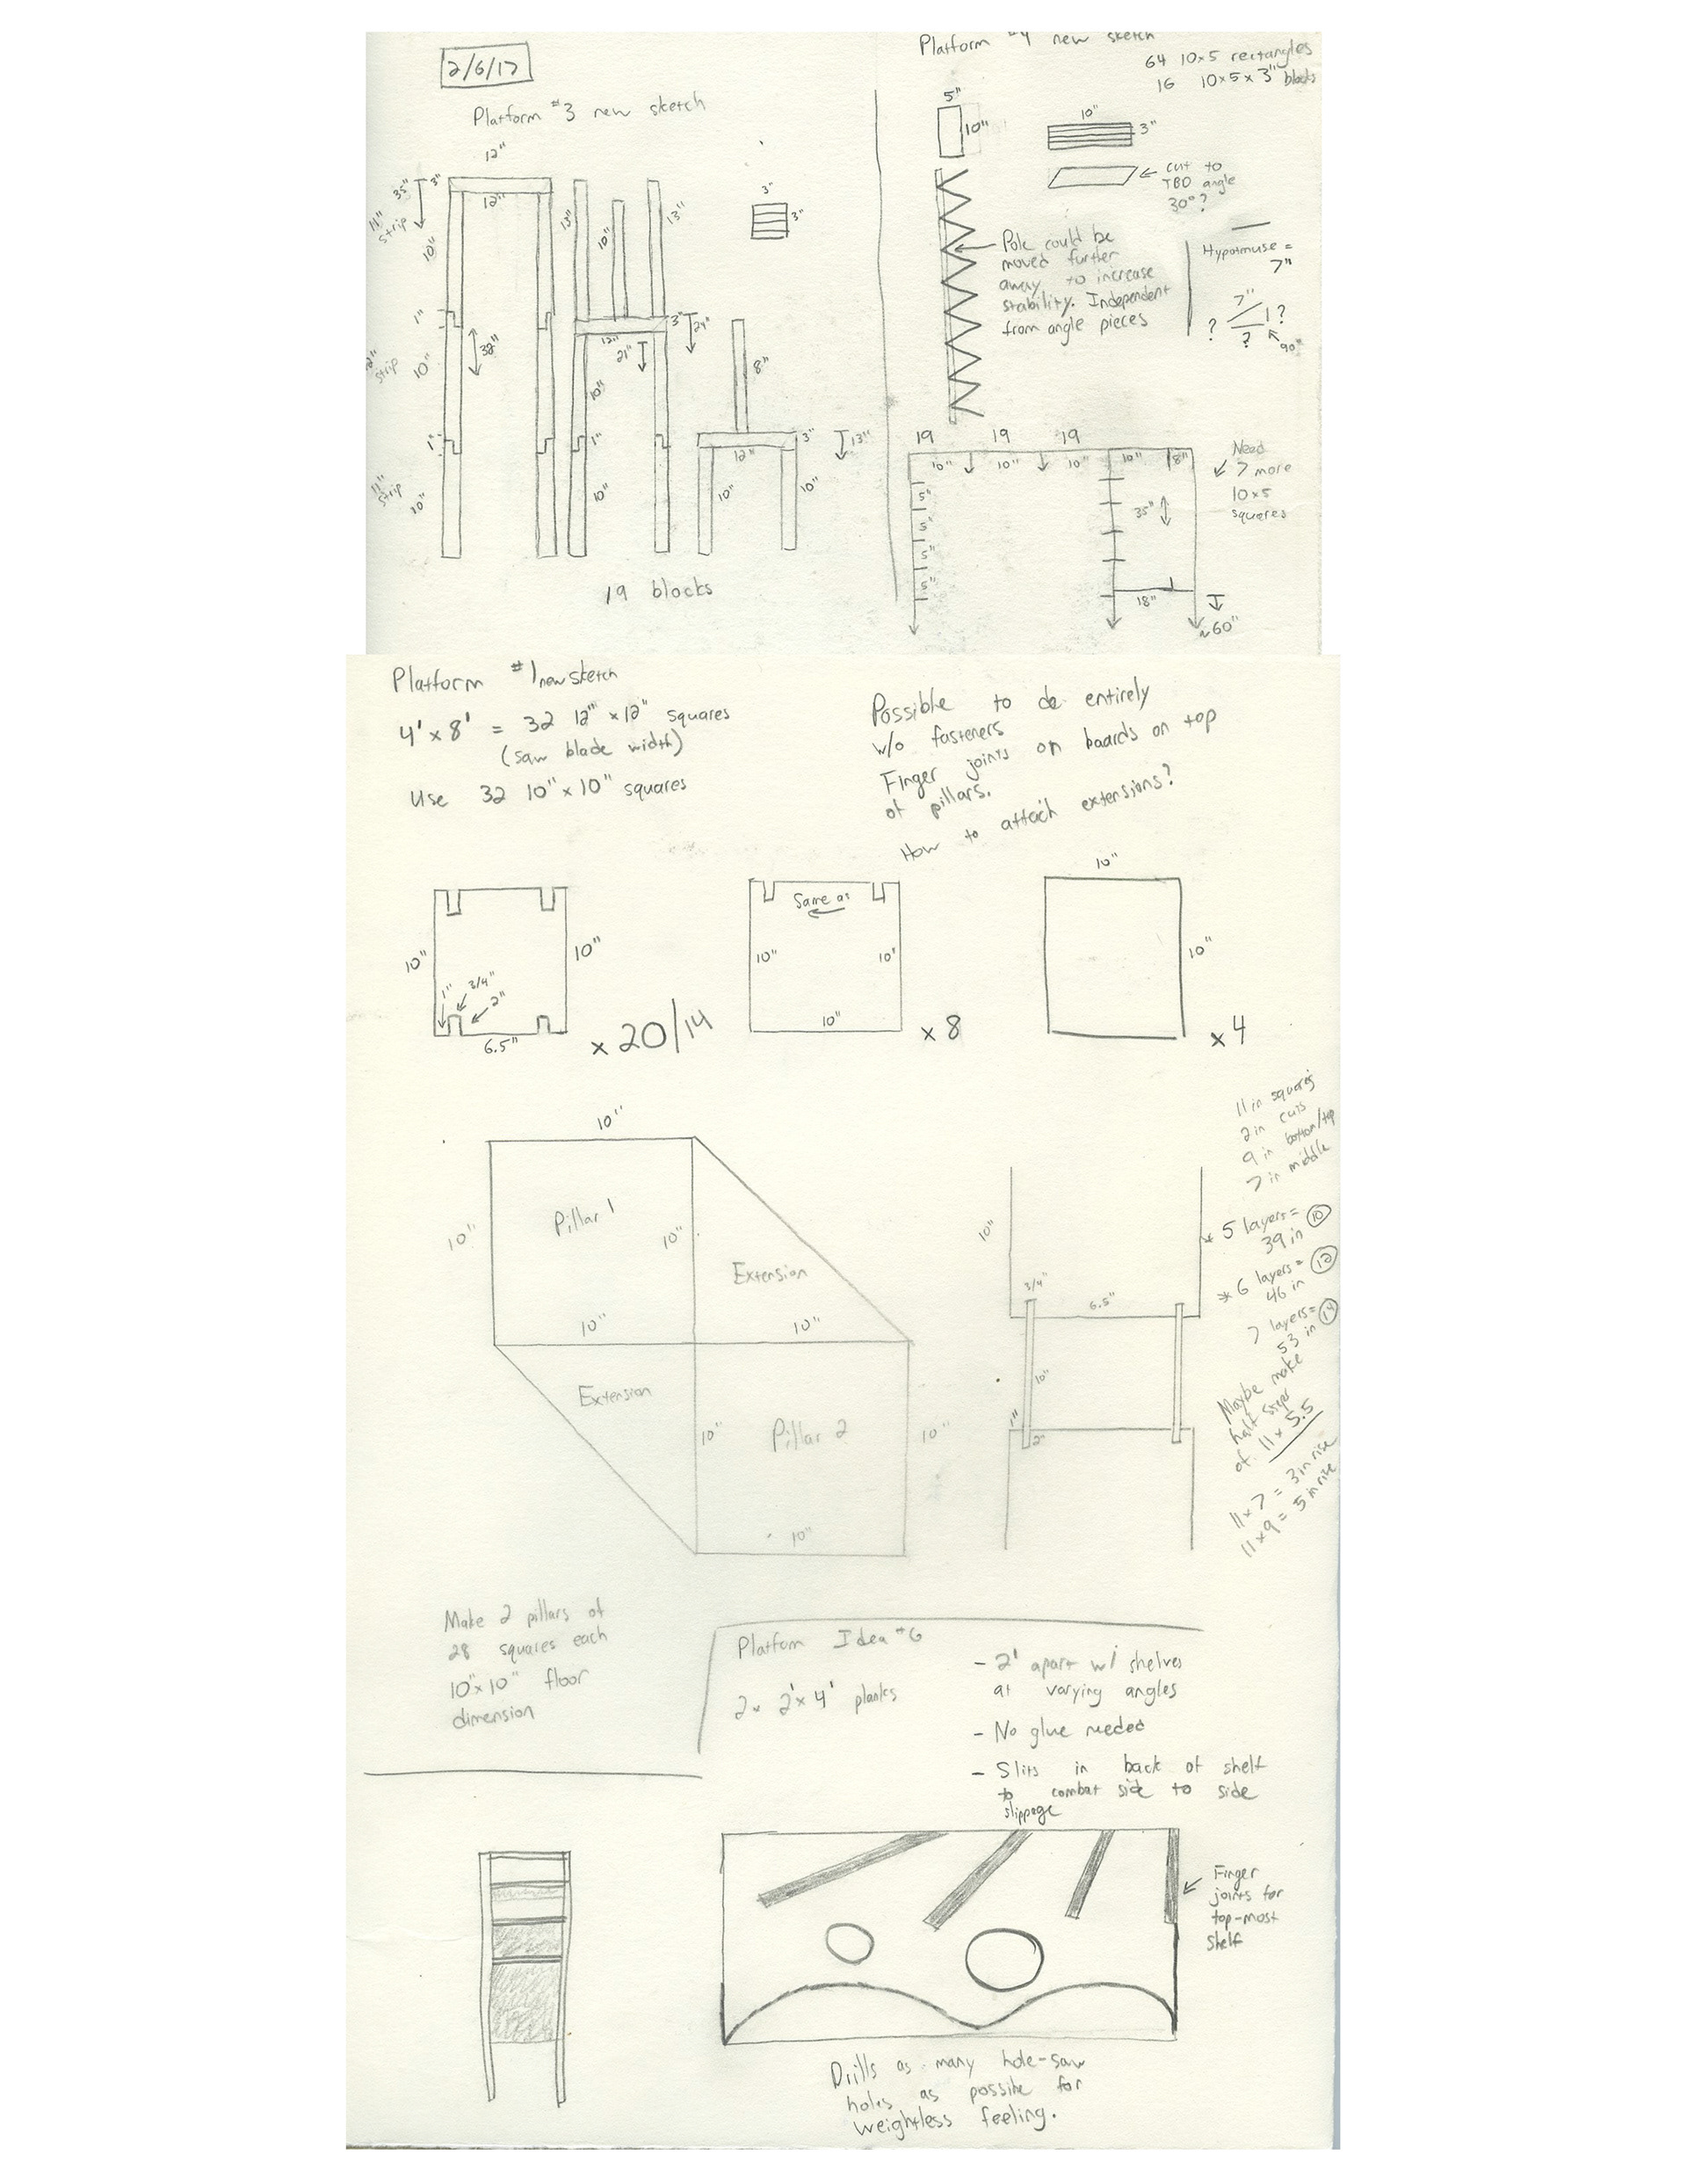 2/6/17
Platform #3 new sketch
12"
35"
3"
12"
11"
strip
10"
13"
10"
13"
3"
3"
1"
32"
strip
10"
12"
3"
24"
21"
10"
8"
1"
1"
11"
strip
10"
10"
12"
3"
13"
10"
10"
19 blocks
Platform #4 new sketch
64 10x5 rectangles
16 10x5x3" blocks
5"
10"
10"
3"
cut to
TBD angle
30°?
Pole could be
moved further
away to increase
stability. Independent
from angle pieces
Hypotnuse =
7"
7"
?
?
?
90°
19 19 19
10" 10" 10" 10" 8"
5"
5"
5"
5"
35"
18"
~60"
Need
7 more
10x5
squares
Platform #1 new sketch
4' x 8' = 32 12" x 12" squares
(saw blade width)
Use 32 10" x 10" squares
Possible to do entirely
w/o fasteners
Finger joints on boards on top
of pillars.
How to attach extensions?
10"
10"
1"
3/4"
2"
6.5"
x 20/14
Same as
10"
10"
10"
x 8
10"
10"
x 4
10"
10"
Pillar 1
10"
Extension
10"
10"
Extension
10"
Pillar 2
10"
10"
10"
3/4"
6.5"
10"
1"
2"
11 in squares
2 in cuts
9 in bottom/top
7 in middle
* 5 layers = 10
39 in
* 6 layers = 12
46 in
7 layers = 14
53 in
Maybe make
half steps
of 11 x 5.5
11 x 7 = 3 in rise
11 x 9 = 5 in rise
Make 2 pillars of
28 squares each
10"x10" floor
dimension
Platform Idea #6
2x 2'x4' planks
- 2' apart w/ shelves
at varying angles
- No glue needed
- Slits in back of shelf
to combat side to side
slippage
Finger
joints for
top-most
shelf
Drills as many hole-saw
holes as possible for
weightless feeling.